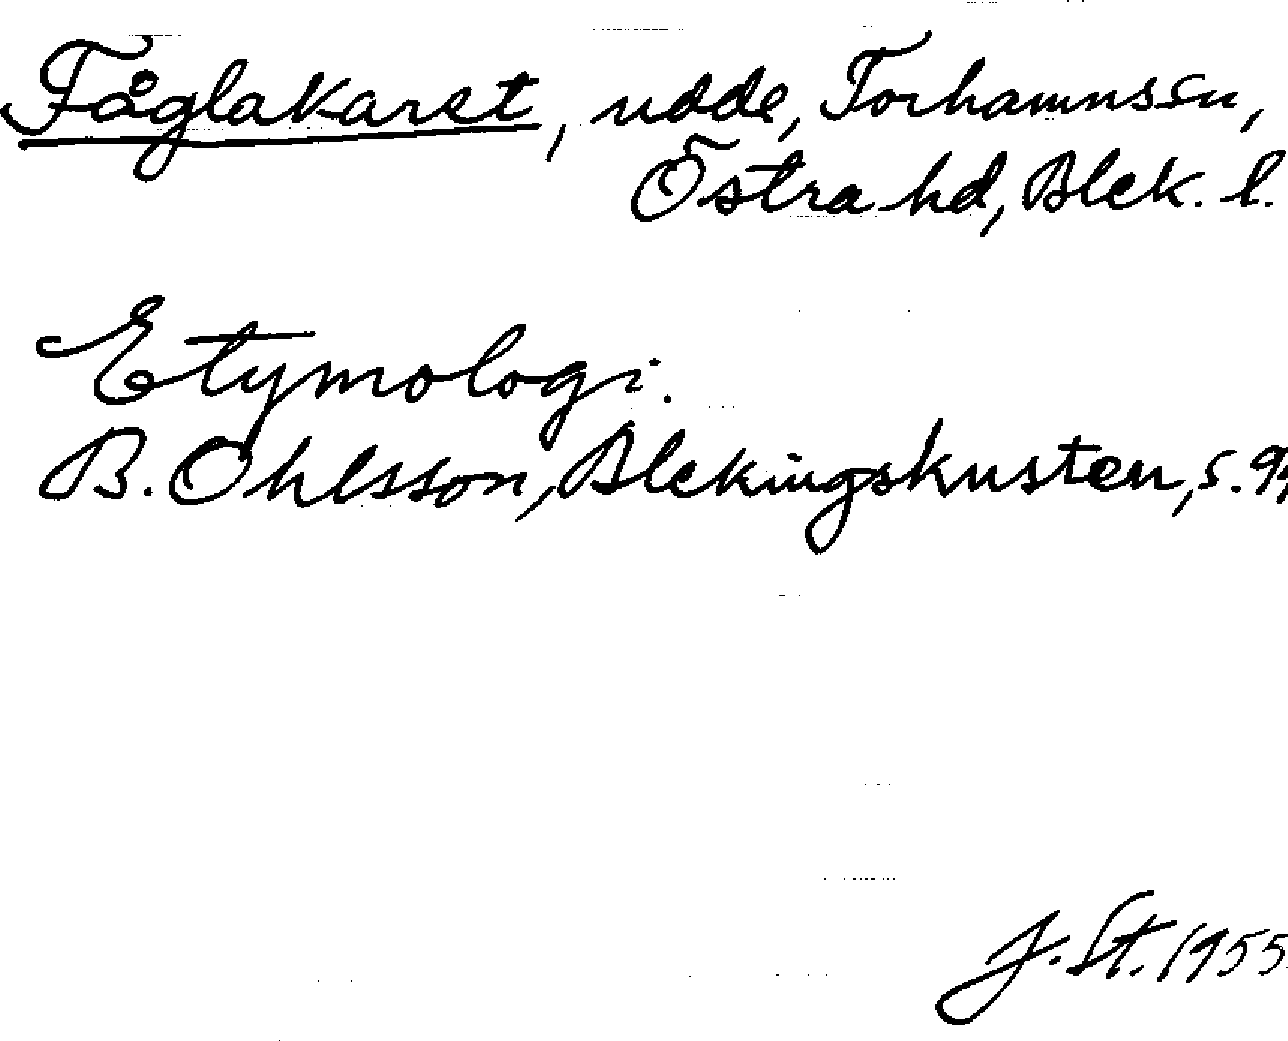 Fåglakaret, udde, Torhamns sn,
Östra hd, Blek. l.
Etymologi.
B. Ohlsson, Blekingskusten, s.
J. St. 1955